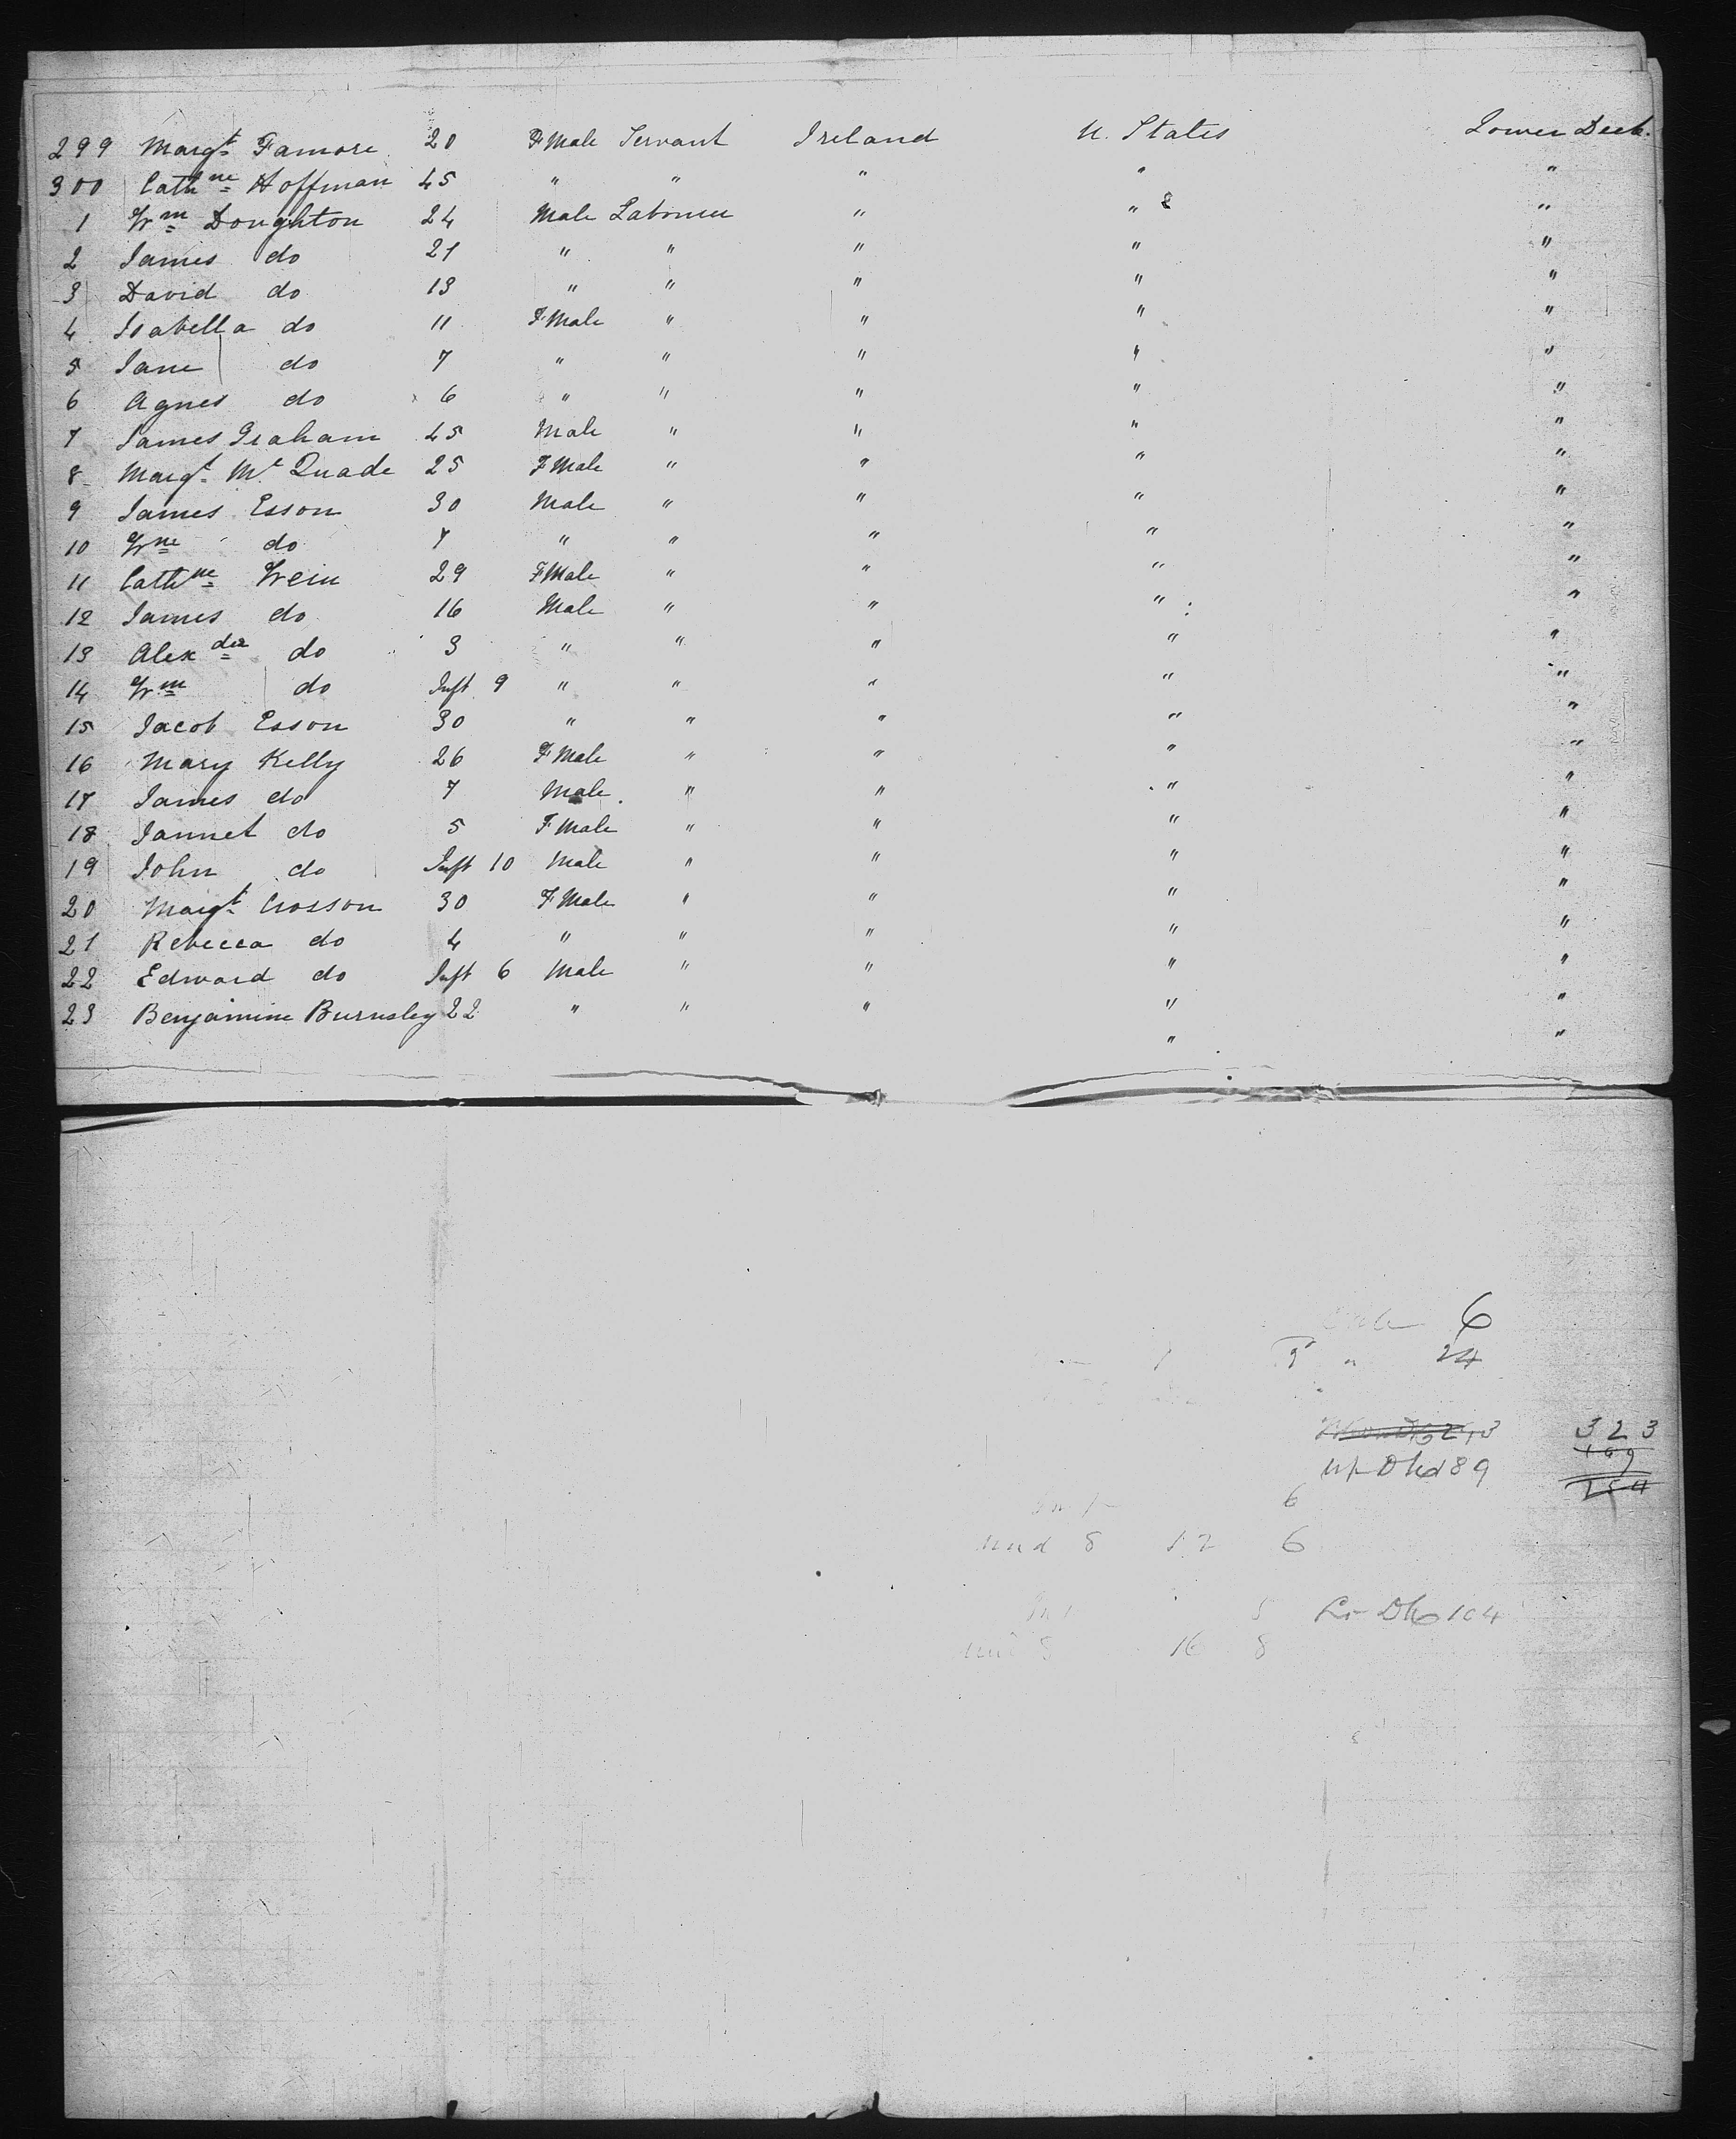 299 Margt Famore 20 FMale Servant Ireland U. States Lower Deck.
300 Cathne Hoffman 45 " " " " "
1 Wm Doughton 24 Male Labourer " " "
2 James do 21 " " " " "
3 David do 13 " " " " "
4 Isabella do 11 FMale " " " "
5 Jane do 7 " " " " "
6 Agnes do 6 " " " " "
7 James Graham 45 Male " " " "
8 Margt Mc Quade 25 FMale " " " "
9 James Esson 30 Male " " " "
10 Wm do 7 " " " " "
11 Cathne Wein 29 FMale " " " "
12 James do 16 Male " " " "
13 Alexder do 3 " " " " "
14 Wm do Inft 9 " " " " "
15 Jacob Esson 30 " " " " "
16 Mary Kelly 26 FMale " " " "
17 James do 7 Male " " " "
18 Jannet do 5 FMale " " " "
19 John do Inft 10 Male " " " "
20 Margt Crosson 30 FMale " " " "
21 Rebecca do 4 " " " " "
22 Edward do Inft 6 Male " " " "
23 Benjamine Burnsley 22 " " " " "
" "
6
F " 24
323
Up Dk 189
199
6
und 8 12 6
Lr Dk 104
16 8